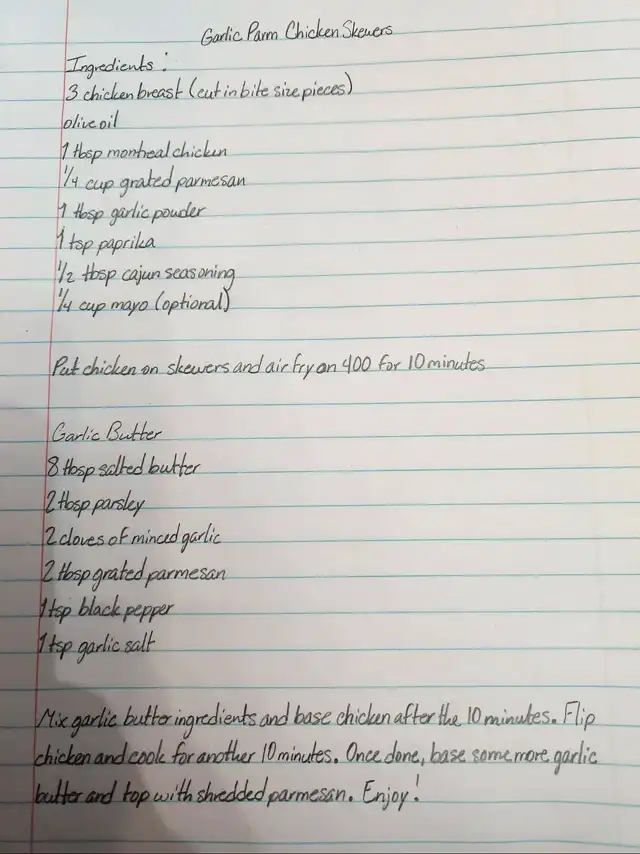 Garlic Parm Chicken Skewers
Ingredients:
3 chicken breast (cut in bite size pieces)
olive oil
1 tbsp montreal chicken
1/4 cup grated parmesan
1 tbsp garlic powder
1 tsp paprika
1/2 tbsp cajun seasoning
1/4 cup mayo (optional)
Put chicken on skewers and air fry on 400 for 10 minutes
Garlic Butter
8 tbsp salted butter
2 tbsp parsley
2 cloves of minced garlic
2 tbsp grated parmesan
1 tsp black pepper
1 tsp garlic salt
Mix garlic butter ingredients and base chicken after the 10 minutes. Flip
chicken and cook for another 10 minutes. Once done, base some more garlic
butter and top with shredded parmesan. Enjoy!